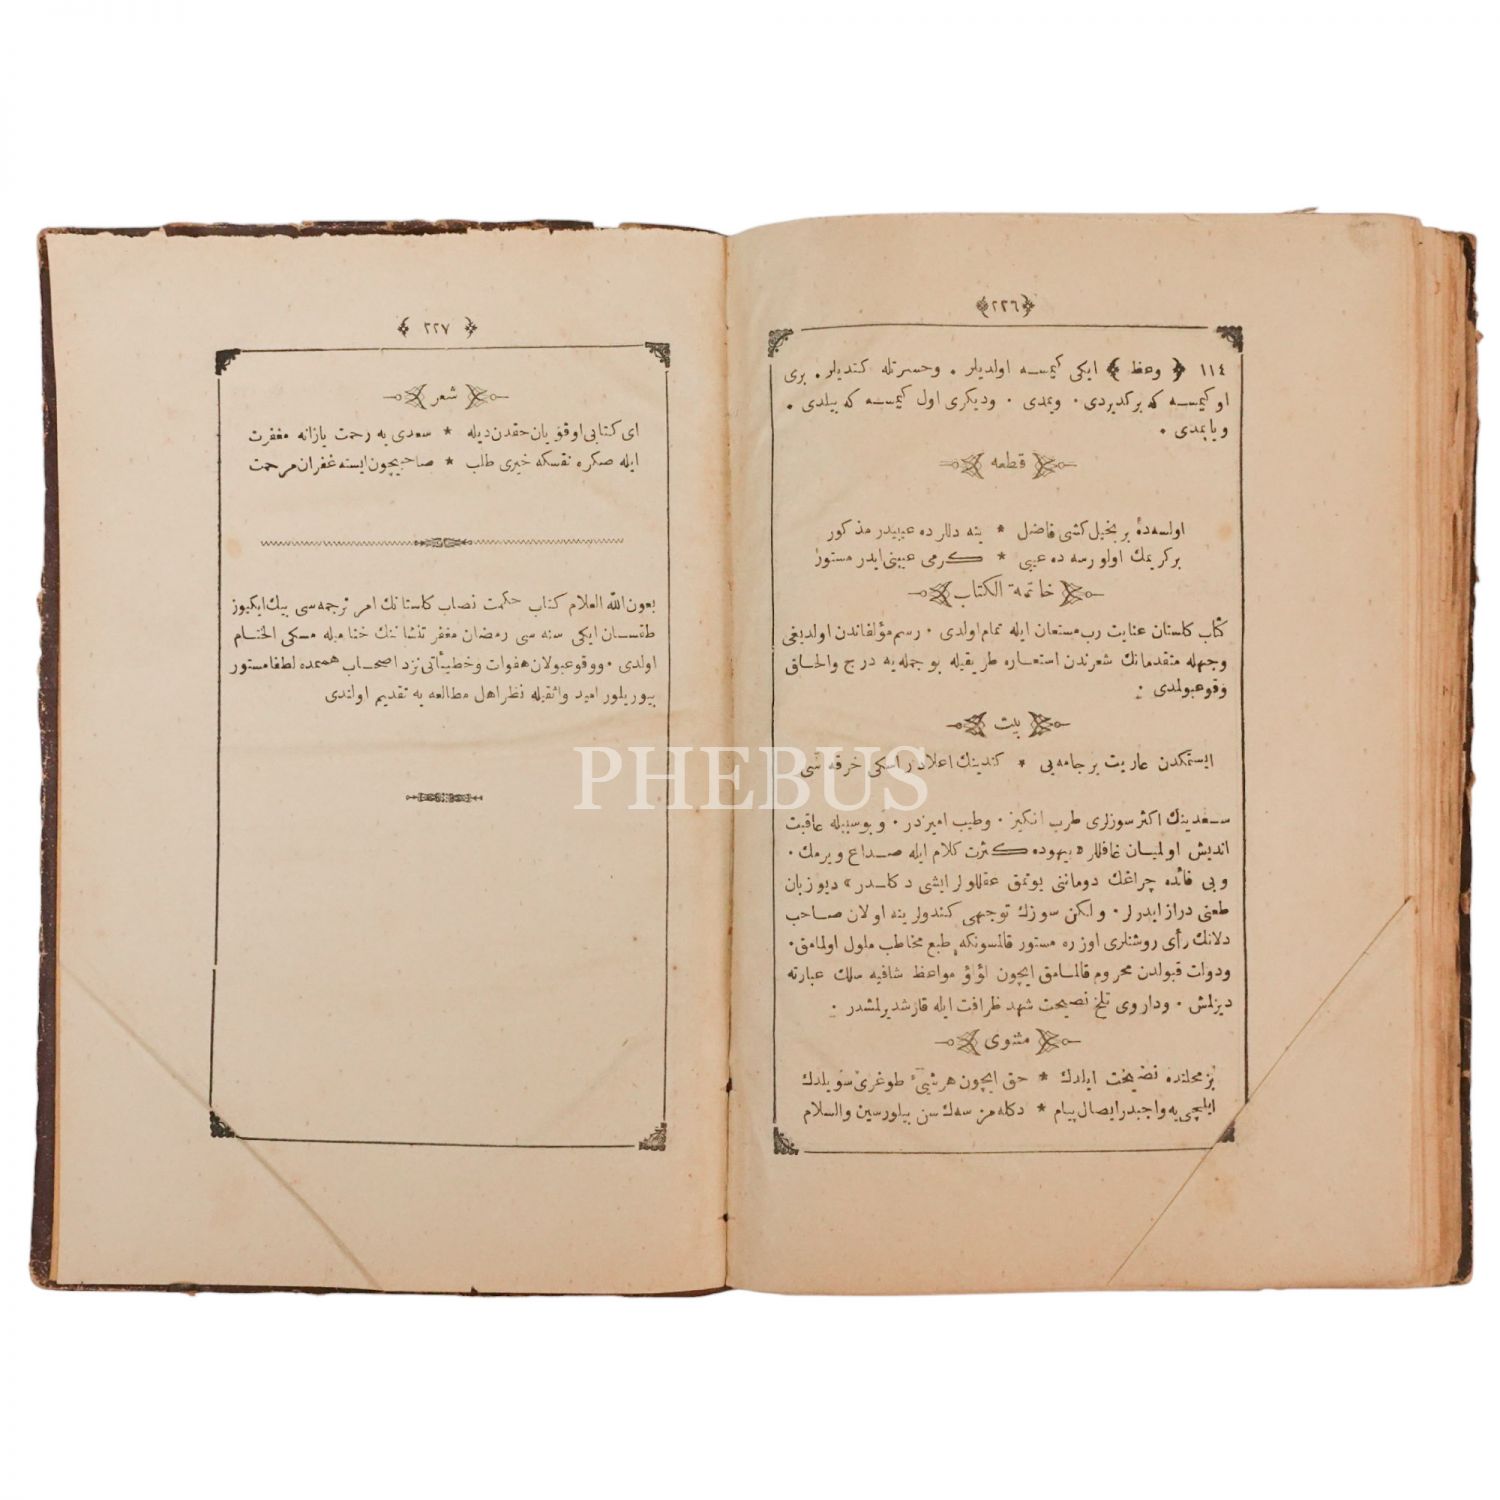 ﴿٢٢٦﴾
١١٤ ﴿ وعظ ﴾ ایکی کیمسه اولدیلر ٠ وحسرتله کتدیلر ٠ بری
او کیمسه که برکدیردی ٠ ویمدی ٠ ودیکری اول کیمسه که بیلدی ٠
ویاپمدی ٠
قطعه
اولسه ده بر بخیل کشی فاضل * ینه دللرده عیبیدر مذکور
برکریمك اولورسه ده عیبی * کرمی عیبنی ایدر مستور
خاتمة الکتاب
کتاب کلستان عنایت رب مستعان ایله تمام اولدی ٠ رسم مؤلفاندن اولدیغی
وجهله متقدمانك شعرندن استعاره طریقیله بو جمله یه درج والحاق
وقوعبولمدی
بیت
ایستمکدن عاریت بر جامه یی * کندینك اعلادر اسکی خرقه سی
سعدینك اکثر سوزلری طرب انکیز ٠ وطیب امیزدر ٠ وبوسببله عاقبت
اندیش اولمیان غافللر « بیهوده کثرت کلام ایله صداع ویرمك ٠
وبی فائده چراغك دوماننی یوتمق عقللولر ایشی دکلدر » دیو زبان
طعنی دراز ایدرلر ٠ ولکن سوزك توجهی کندولرینه اولان صاحب
دلانك رأی روشنلری اوزره مستور قالمسونکه طبع مخاطب ملول اولمامق ٠
ودولت قبولدن محروم قالمامق ایچون لؤلؤ مواعظ شافیه سلك عبارته
دیزلمش ٠ وداروی تلخ نصیحت شهد ظرافت ایله قارشدیرلمشدر
مثنوی
بز محلنده نصیحت ایلدك * حق ایچون هر شیئ طوغری سویلدك
ایلچی یه واجبدر ایصال پیام * دکله مزسه ك سن بیلورسین والسلام
﴿ ٢٢٧ ﴾
شعر
ای کتابی اوقویان حقدن دیله * سعدی یه رحمت یازانه مغفرت
ایله صکره نفسکه خیری طلب * صاحبیچون ایسته غفران مرحمت
بعون الله العلام کتاب حکمت نصاب کلستانك امر ترجمه سی بیك ایکیوز
طقسان ایکی سنه سی رمضان مغفر تنشاننك ختامیله مسکی الختام
اولدی ٠ ووقوعبولان هفوات وخطیئاتی نزد اصحاب هممده لطفا مستور
بیوریلور امید واثقیله نظر اهل مطالعه یه تقدیم اولندی
PHEBUS